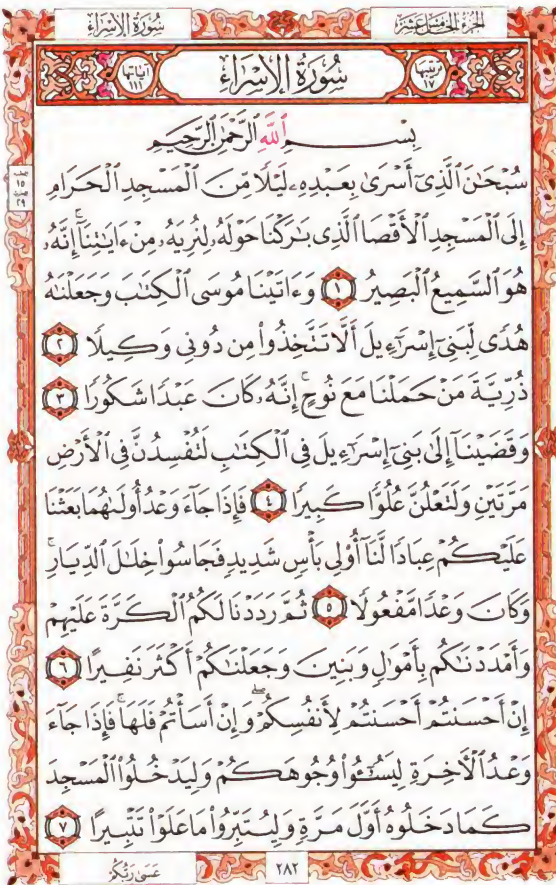 سُورَةُ الإِسْرَاءِ
الجُزْءُ الخَامِسَ عَشَرَ
آيَاتُهَا ١١١
سُورَةُ الإِسْرَاءِ
تَرْتِيبُهَا ١٧
بِسْمِ ٱللَّهِ ٱلرَّحْمَٰنِ ٱلرَّحِيمِ
سُبْحَٰنَ ٱلَّذِىٓ أَسْرَىٰ بِعَبْدِهِۦ لَيْلًا مِّنَ ٱلْمَسْجِدِ ٱلْحَرَامِ
إِلَى ٱلْمَسْجِدِ ٱلْأَقْصَا ٱلَّذِى بَٰرَكْنَا حَوْلَهُۥ لِنُرِيَهُۥ مِنْ ءَايَٰتِنَآ ۚ إِنَّهُۥ
هُوَ ٱلسَّمِيعُ ٱلْبَصِيرُ ١ وَءَاتَيْنَا مُوسَى ٱلْكِتَٰبَ وَجَعَلْنَٰهُ
هُدًى لِّبَنِىٓ إِسْرَٰٓءِيلَ أَلَّا تَتَّخِذُوا۟ مِن دُونِى وَكِيلًا ٢
ذُرِّيَّةَ مَنْ حَمَلْنَا مَعَ نُوحٍ ۚ إِنَّهُۥ كَانَ عَبْدًا شَكُورًا ٣
وَقَضَيْنَآ إِلَىٰ بَنِىٓ إِسْرَٰٓءِيلَ فِى ٱلْكِتَٰبِ لَتُفْسِدُنَّ فِى ٱلْأَرْضِ
مَرَّتَيْنِ وَلَتَعْلُنَّ عُلُوًّا كَبِيرًا ٤ فَإِذَا جَآءَ وَعْدُ أُولَىٰهُمَا بَعَثْنَا
عَلَيْكُمْ عِبَادًا لَّنَآ أُو۟لِى بَأْسٍ شَدِيدٍ فَجَاسُوا۟ خِلَٰلَ ٱلدِّيَارِ ۚ
وَكَانَ وَعْدًا مَّفْعُولًا ٥ ثُمَّ رَدَدْنَا لَكُمُ ٱلْكَرَّةَ عَلَيْهِمْ
وَأَمْدَدْنَٰكُم بِأَمْوَٰلٍ وَبَنِينَ وَجَعَلْنَٰكُمْ أَكْثَرَ نَفِيرًا ٦
إِنْ أَحْسَنتُمْ أَحْسَنتُمْ لِأَنفُسِكُمْ ۖ وَإِنْ أَسَأْتُمْ فَلَهَا ۚ فَإِذَا جَآءَ
وَعْدُ ٱلْءَاخِرَةِ لِيَسُـۥٓـُٔوا۟ وُجُوهَكُمْ وَلِيَدْخُلُوا۟ ٱلْمَسْجِدَ
كَمَا دَخَلُوهُ أَوَّلَ مَرَّةٍ وَلِيُتَبِّرُوا۟ مَا عَلَوْا۟ تَتْبِيرًا ٧
٢٨٢
عَسَىٰ رَبُّكُمْ